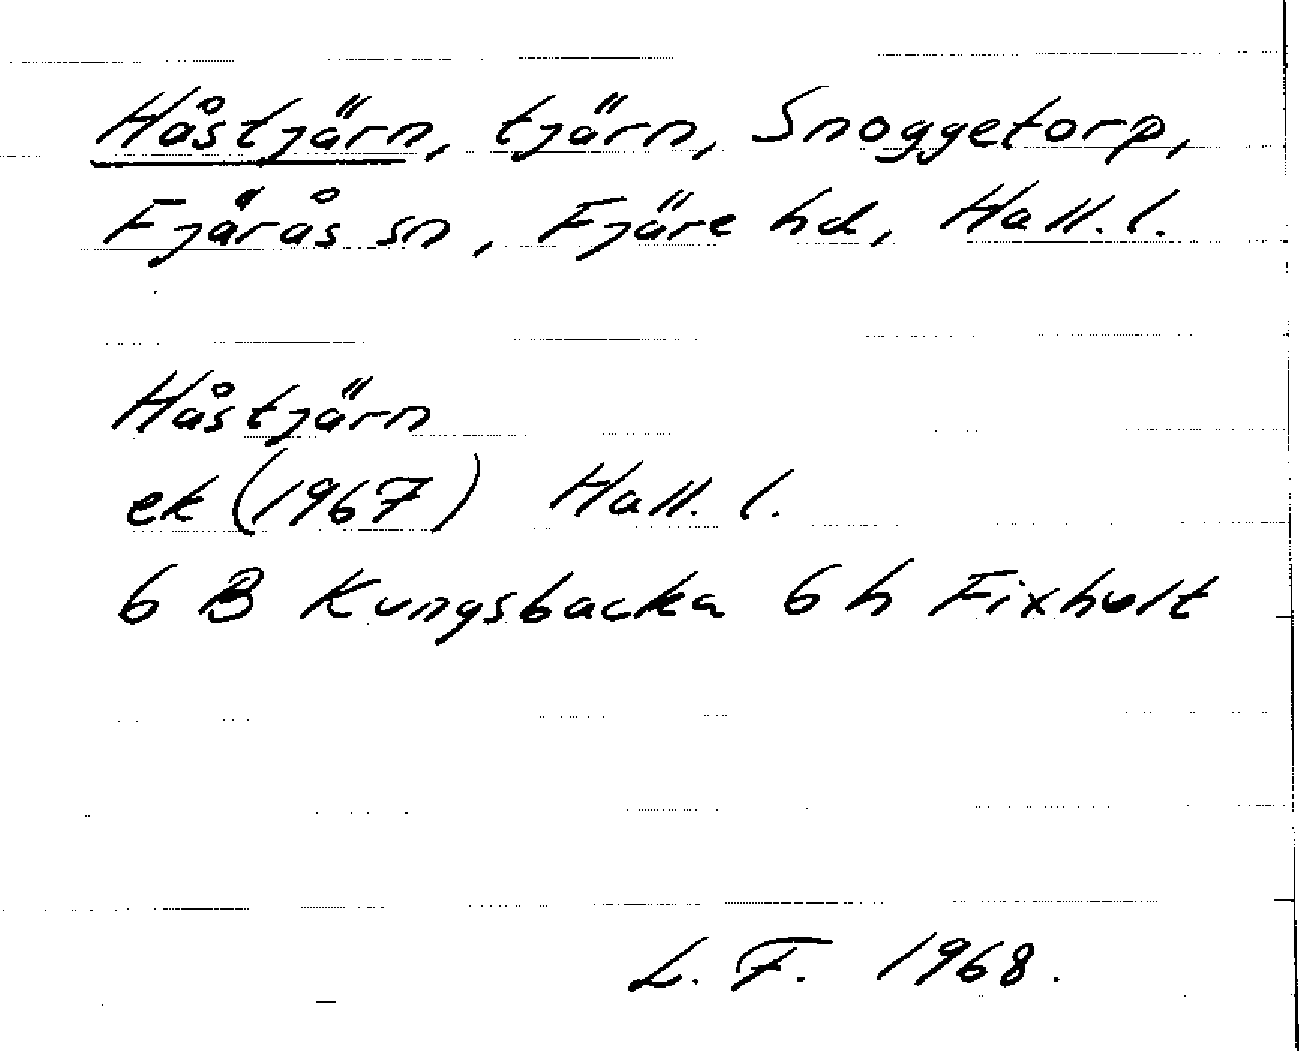 Håstjärn, tjärn, Snoggetorp,
Fjärås sn, Fjäre hd, Hall. l.
Håstjärn
ek (1967) Hall. l.
6 B Kungsbacka 6 h Fixhult
L. F. 1968.